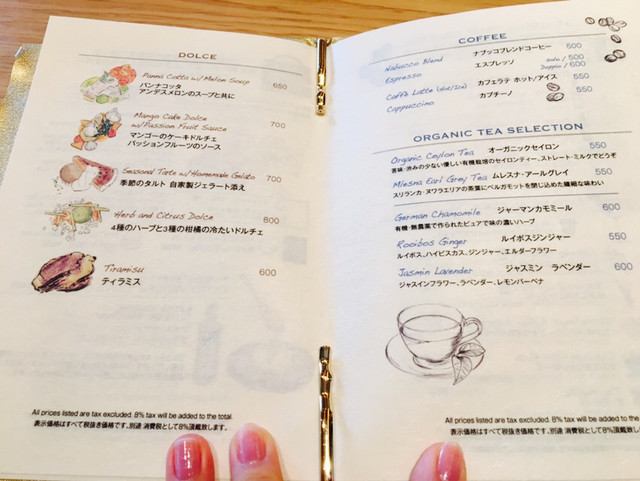 DOLCE
Panna Cotta w/ Melon Soup 650
パンナコッタ
アンデスメロンのスープと共に
Mango Cake Dolce
w/Passion Fruit Sauce 700
マンゴーのケーキドルチェ
パッションフルーツのソース
Seasonal Tarte w/ Homemade Gelato 700
季節のタルト 自家製ジェラート添え
Herb and Citrus Dolce 800
4種のハーブと3種の柑橘の冷たいドルチェ
Tiramisu 600
ティラミス
All prices listed are tax excluded. 8% tax will be added to the total.
表示価格はすべて税抜き価格です。別途 消費税として8%頂戴致します。
COFFEE
Nabucco Blend ナブッコブレンドコーヒー 500
Espresso エスプレッソ Solo / 500
Doppio / 600
Caffè Latte (Hot/Ice) カフェラテ ホット/アイス 550
Cappuccino カプチーノ 550
ORGANIC TEA SELECTION
Organic Ceylon Tea オーガニックセイロン 550
苦味・渋みの少ない優しい有機栽培のセイロンティー、ストレート・ミルクでどうぞ
Mlesna Earl Grey Tea ムレスナ・アールグレイ 550
スリランカ・ヌワラエリアの茶葉にベルガモットを閉じ込めた繊細な味わい
German Chamomile ジャーマンカモミール 600
有機・無農薬で作られたピュアで味の濃いハーブ
Rooibos Ginger ルイボスジンジャー 550
ルイボス、ハイビスカス、ジンジャー、エルダーフラワー
Jasmin Lavender ジャスミン ラベンダー 600
ジャスインフラワー、ラベンダー、レモンバーベナ
All prices listed are tax excluded. 8% tax will be added to the
表示価格はすべて税抜き価格です。別途 消費税として8%頂戴致します